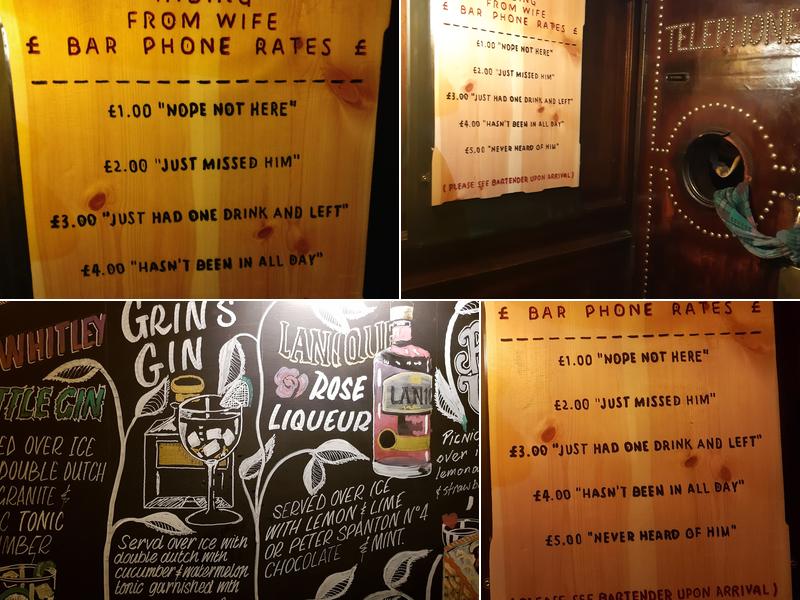 FROM WIFE
£ BAR PHONE RATES £
£1.00 "NOPE NOT HERE"
£2.00 "JUST MISSED HIM"
£3.00 "JUST HAD ONE DRINK AND LEFT"
£4.00 "HASN'T BEEN IN ALL DAY"
FROM WIFE
£ BAR PHONE RATES £
£1.00 "NOPE NOT HERE"
£2.00 "JUST MISSED HIM"
£3.00 "JUST HAD ONE DRINK AND LEFT"
£4.00 "HASN'T BEEN IN ALL DAY"
£5.00 "NEVER HEARD OF HIM"
(PLEASE SEE BARTENDER UPON ARRIVAL)
TELEPHONE
WHITLEY
TTLE GIN
ED OVER ICE
DOUBLE DUTCH
GRANITE &
C TONIC
MBER
GRIN'S
GIN
Servd over ice with
double dutch with
cucumber & watermelon
tonic garnished with
LANIQUE
ROSE
LIQUEUR
LANI
SERVED OVER ICE
WITH LEMON & LIME
OR PETER SPANTON Nº4
CHOCOLATE & MINT.
Picnic
over i
lemona
& strawb
£ BAR PHONE RATES £
£1.00 "NOPE NOT HERE"
£2.00 "JUST MISSED HIM"
£3.00 "JUST HAD ONE DRINK AND LEFT"
£4.00 "HASN'T BEEN IN ALL DAY"
£5.00 "NEVER HEARD OF HIM"
(PLEASE SEE BARTENDER UPON ARRIVAL)